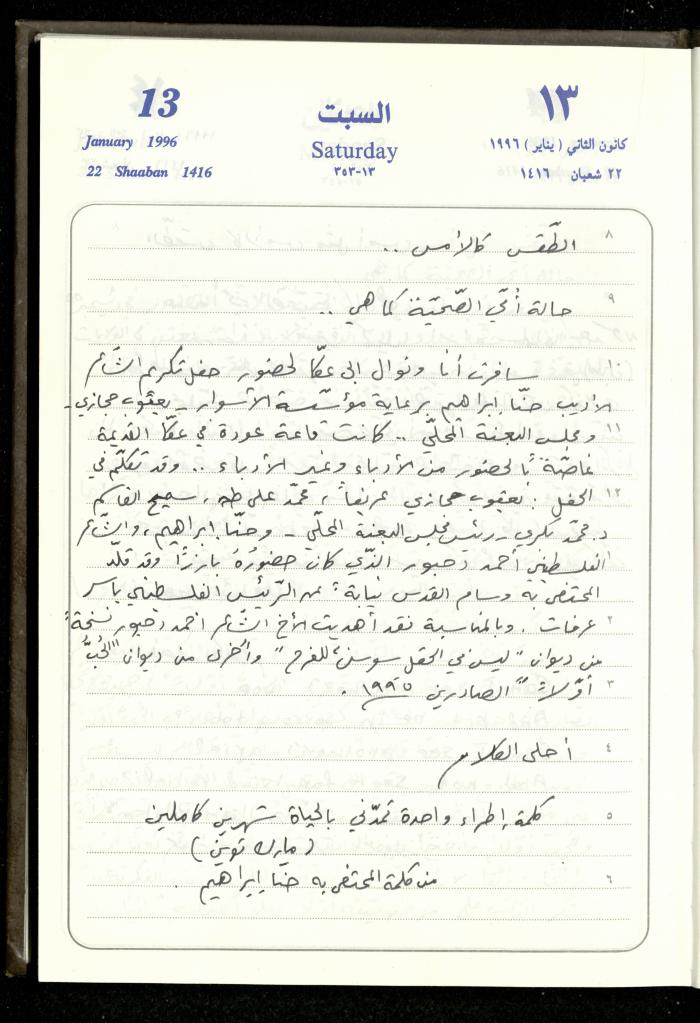 13
January 1996
22 Shaaban 1416
السبت
Saturday
٣٥٣-١٣
١٣
كانون الثاني ( يناير ) ١٩٩٦
٢٢ شعبان ١٤١٦
٨ الطّقس كالأمس ..
٩ حالة أمّي الصّحيّة كما هي ..
١٠ سافرت أنا ونوال الى عكّا لحضور حفل تكريم الشّاعر
الأديب حنّا إبراهيم برعاية مؤسّسة الأسوار - يعقوب حجازي -
١١ ومجلس البعنة المحلّي .. كانت قاعة عودة في عكّا القديمة
غاصّةً بالحضور من الأدباء وغير الأدباء .. وقد تكلّم في
١٢ الحفل : يعقوب حجازي عريفاً ، محمّد علي طه ، سميح القاسم
د. محمّد بكري - رئيس مجلس البعنة المحلّي - وحنّا إبراهيم ، والشّاعر
١ الفلسطيني أحمد دحبور الّذي كان حضورُهُ بارزاً وقد قلّد
المحتفى به وسام القدس نيابةً عن الرّئيس الفلسطيني ياسر
٢ عرفات . وبالمناسبة فقد أهديت الأخ الشّاعر احمد دحبور نسخةً
من ديوان " ليس في الحقل سوسنٌ للفرح " وأخرى من ديوان " الحُبُّ
٣ أوّلاً " الصادرين ١٩٩٥ .
٤ أحلى الكلام
٥ كلمة إطراء واحدة تمدّني بالحياة شهرين كاملين
( مارك توين )
٦ من كلمة المحتفى به حنا إبراهيم .